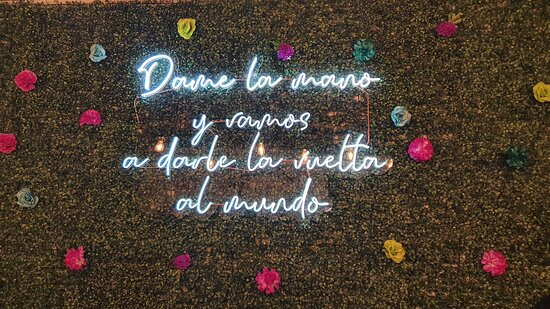 Dame la mano
y vamos
a darle la vuelta
al mundo